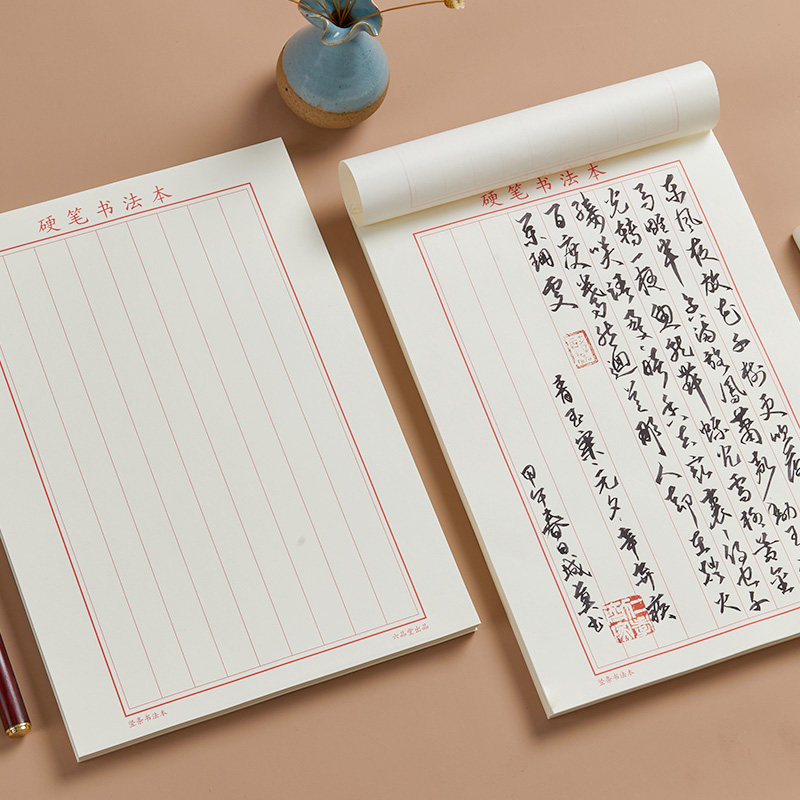 硬笔书法本
六品堂出品
竖条书法本
硬笔书法本
东风夜放花千树更吹落
马雕车香满路凤箫声动玉
光转一夜鱼龙舞蛾儿雪柳黄金
缕笑语盈盈暗香去众里寻他千
百度蓦然迴首那人却在灯火
阑珊处
青玉案元夕 辛弃疾
甲午春日城书
竖条书法本